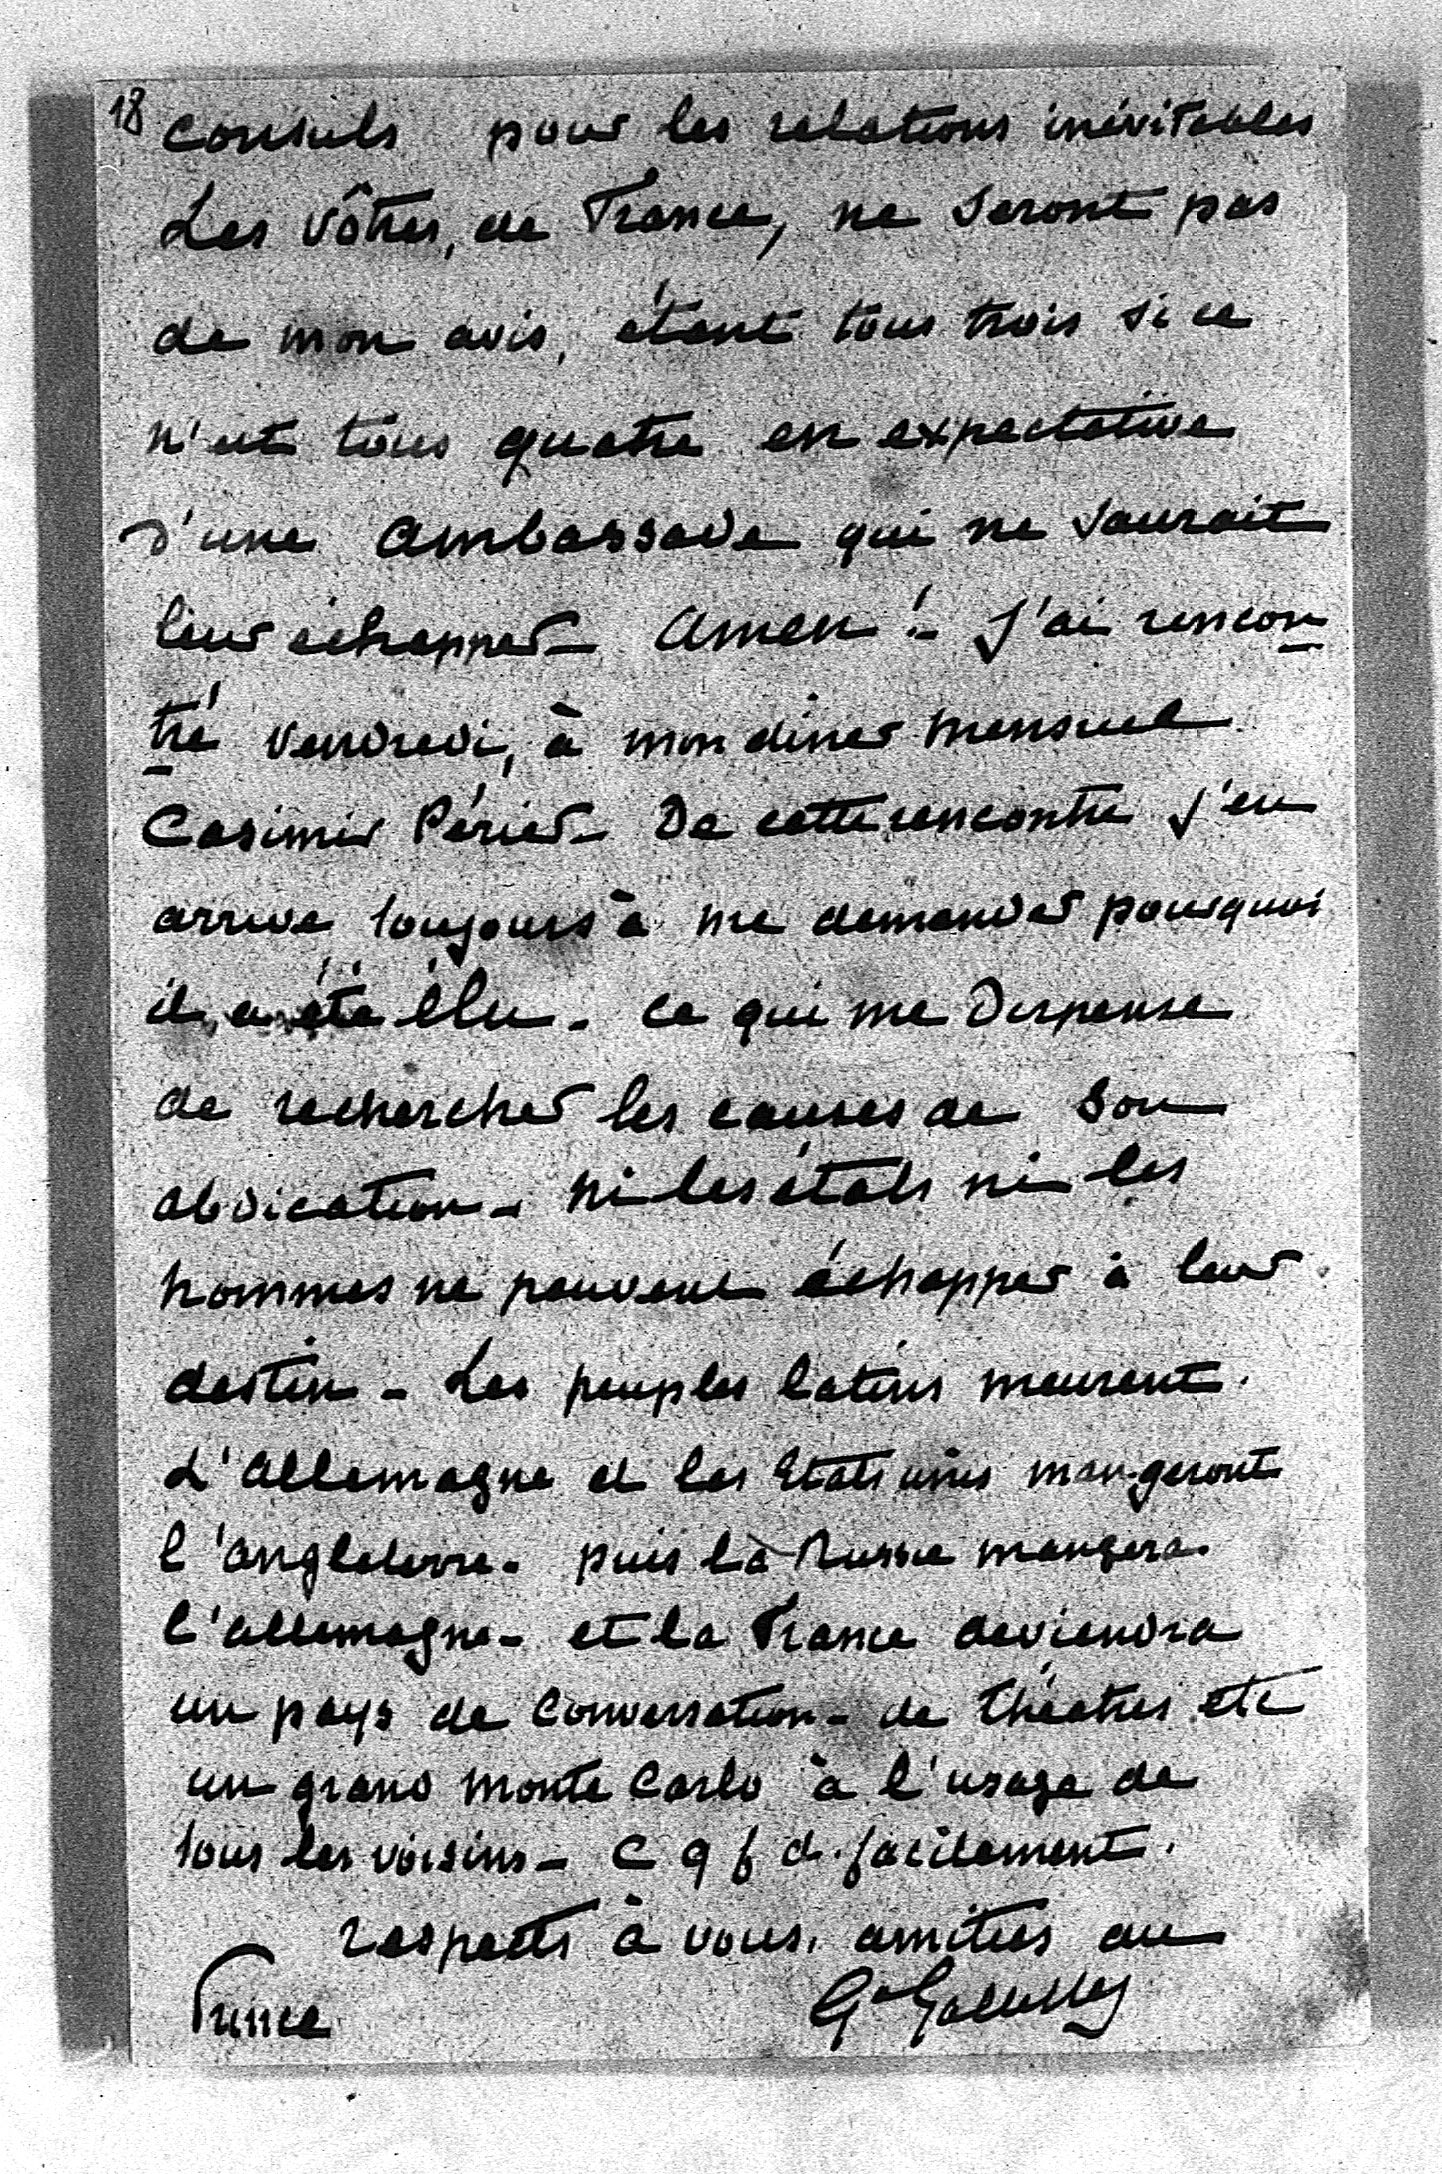 18
consuls pour les relations inévitables
Les vôtres, de France, ne seront pas
de mon avis, étant tous trois si ce
n'est tous quatre en expectative
d'une ambassade qui ne saurait
leur échapper - amen ! - J'ai rencon
tré vendredi, à mon diner mensuel
Casimir Périer - De cette rencontre j'en
arrive toujours à me demander pourquoi
il a été élu - ce qui me dispense
de rechercher les causes de son
abdication - ni les états ni les
hommes ne peuvent échapper à leur
destin - Les peuples latins meurent.
L'allemagne et les Etats unis mangeront
l'angleterre. puis la Russie mangera
l'allemagne - et la France deviendra
un pays de conversation - de théatres etc
un grand monte Carlo à l'usage de
tous les voisins - C q f d. facilement.
respects à vous, amitiés au
Prince
Gal Galliffet